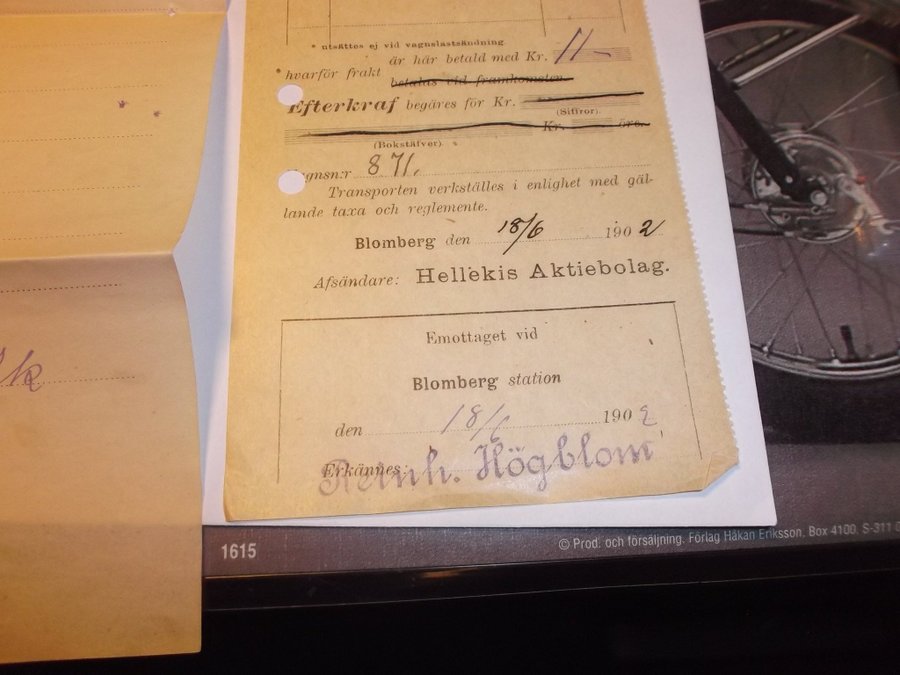 * utsättes ej vid vagnslastsändning.
är här betald med Kr. 11-
* hvarför frakt
betalas vid framkomsten
Efterkraf begäres för Kr.
(Siffror).
Kr. öre.
(Bokstäfver).
gnsn:r 871.
Transporten verkställes i enlighet med gäl-
lande taxa och reglemente.
Blomberg den 18/6 1902
Afsändare: Hellekis Aktiebolag.
Emottaget vid
Blomberg station
den 18/6 1902
Erkännes:
Reinh. Högblom
1615
© Prod. och försäljning. Förlag Håkan Eriksson. Box 4100. S-311 0